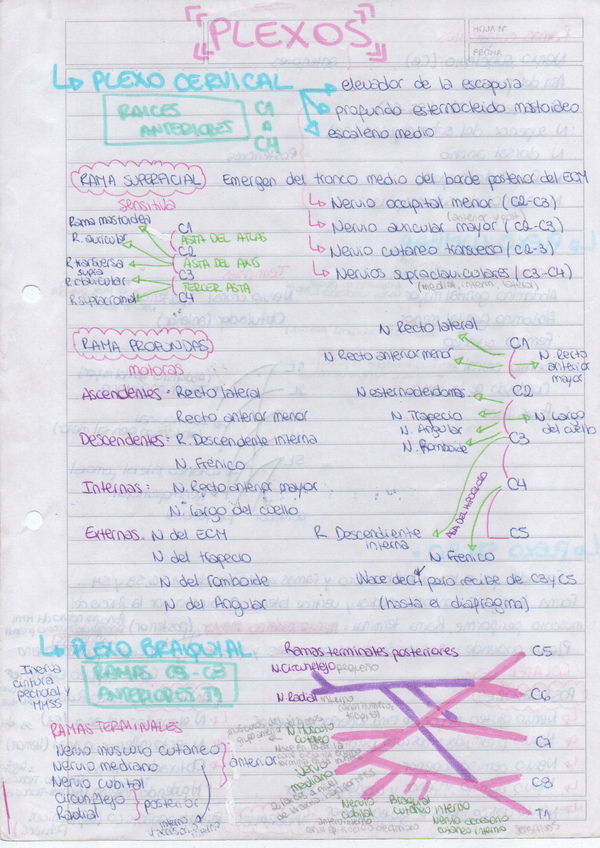 PLEXOS
HOJA Nº
FECHA
PLEXO CERVICAL
RAICES C1
ANTERIORES a
C4
elevador de la escapula
profundo esternocleido mastoideo
escaleno medio
RAMA SUPERFICIAL
Emergen del tronco medio del borde posterior del ECM
sensitiva
Rama mastoidea
R. auricular
R. transversa
supra
R. clavicular
R. supiacromal
C1
ASTA DEL ATLAS
C2
ASTA DEL AXIS
C3
TERCER ASTA
C4
Nervio occipital menor (C2-C3)
(anterior y post)
Nervio auricular mayor (C2-C3)
Nervio cutaneo transverso (C2-3)
Nervios supraclaviculares (C3-C4)
(medial, interm, lateral)
RAMA PROFUNDAS
motoras
Ascendentes - Recto lateral
Recto anterior menor
Descendentes = R. Descendente interna
N. Frénico
Internas: N Recto anterior mayor
N. Largo del cuello
Externas. N del ECM
N del trapecio
N del Romboide
N. del Angular
N. Recto lateral
N Recto anterior menor
N esternocleidomas.
N. Trapecio
N. Angular
N. Romboide
C1
N Recto
anterior
mayor
C2
N. Largo
del cuello
C3
C4
C5
R. Descendiente
interna
N Frenico
Nace de C4 para recibe de C3 y C5
(hasta el diafragma)
PLEXO BRAQUIAL
RAMAS C5-C8
ANTERIORES T1
Inerva
cintura
pectoral y
MMSS
RAMAS TERMINALES
Nervio musculo cutaneo
Nervio mediano
Nervio cubital
anterior
Circunflejo
Radial
posterior
Ramas terminales posteriores
N. Circunflejo
N Radial
N Musculo
cutaneo
Nervio
mediano
Nervio
cubital
Braquial
cutaneo interno
Nervio accesorio
cutaneo interno
C5
C6
C7
C8
T1